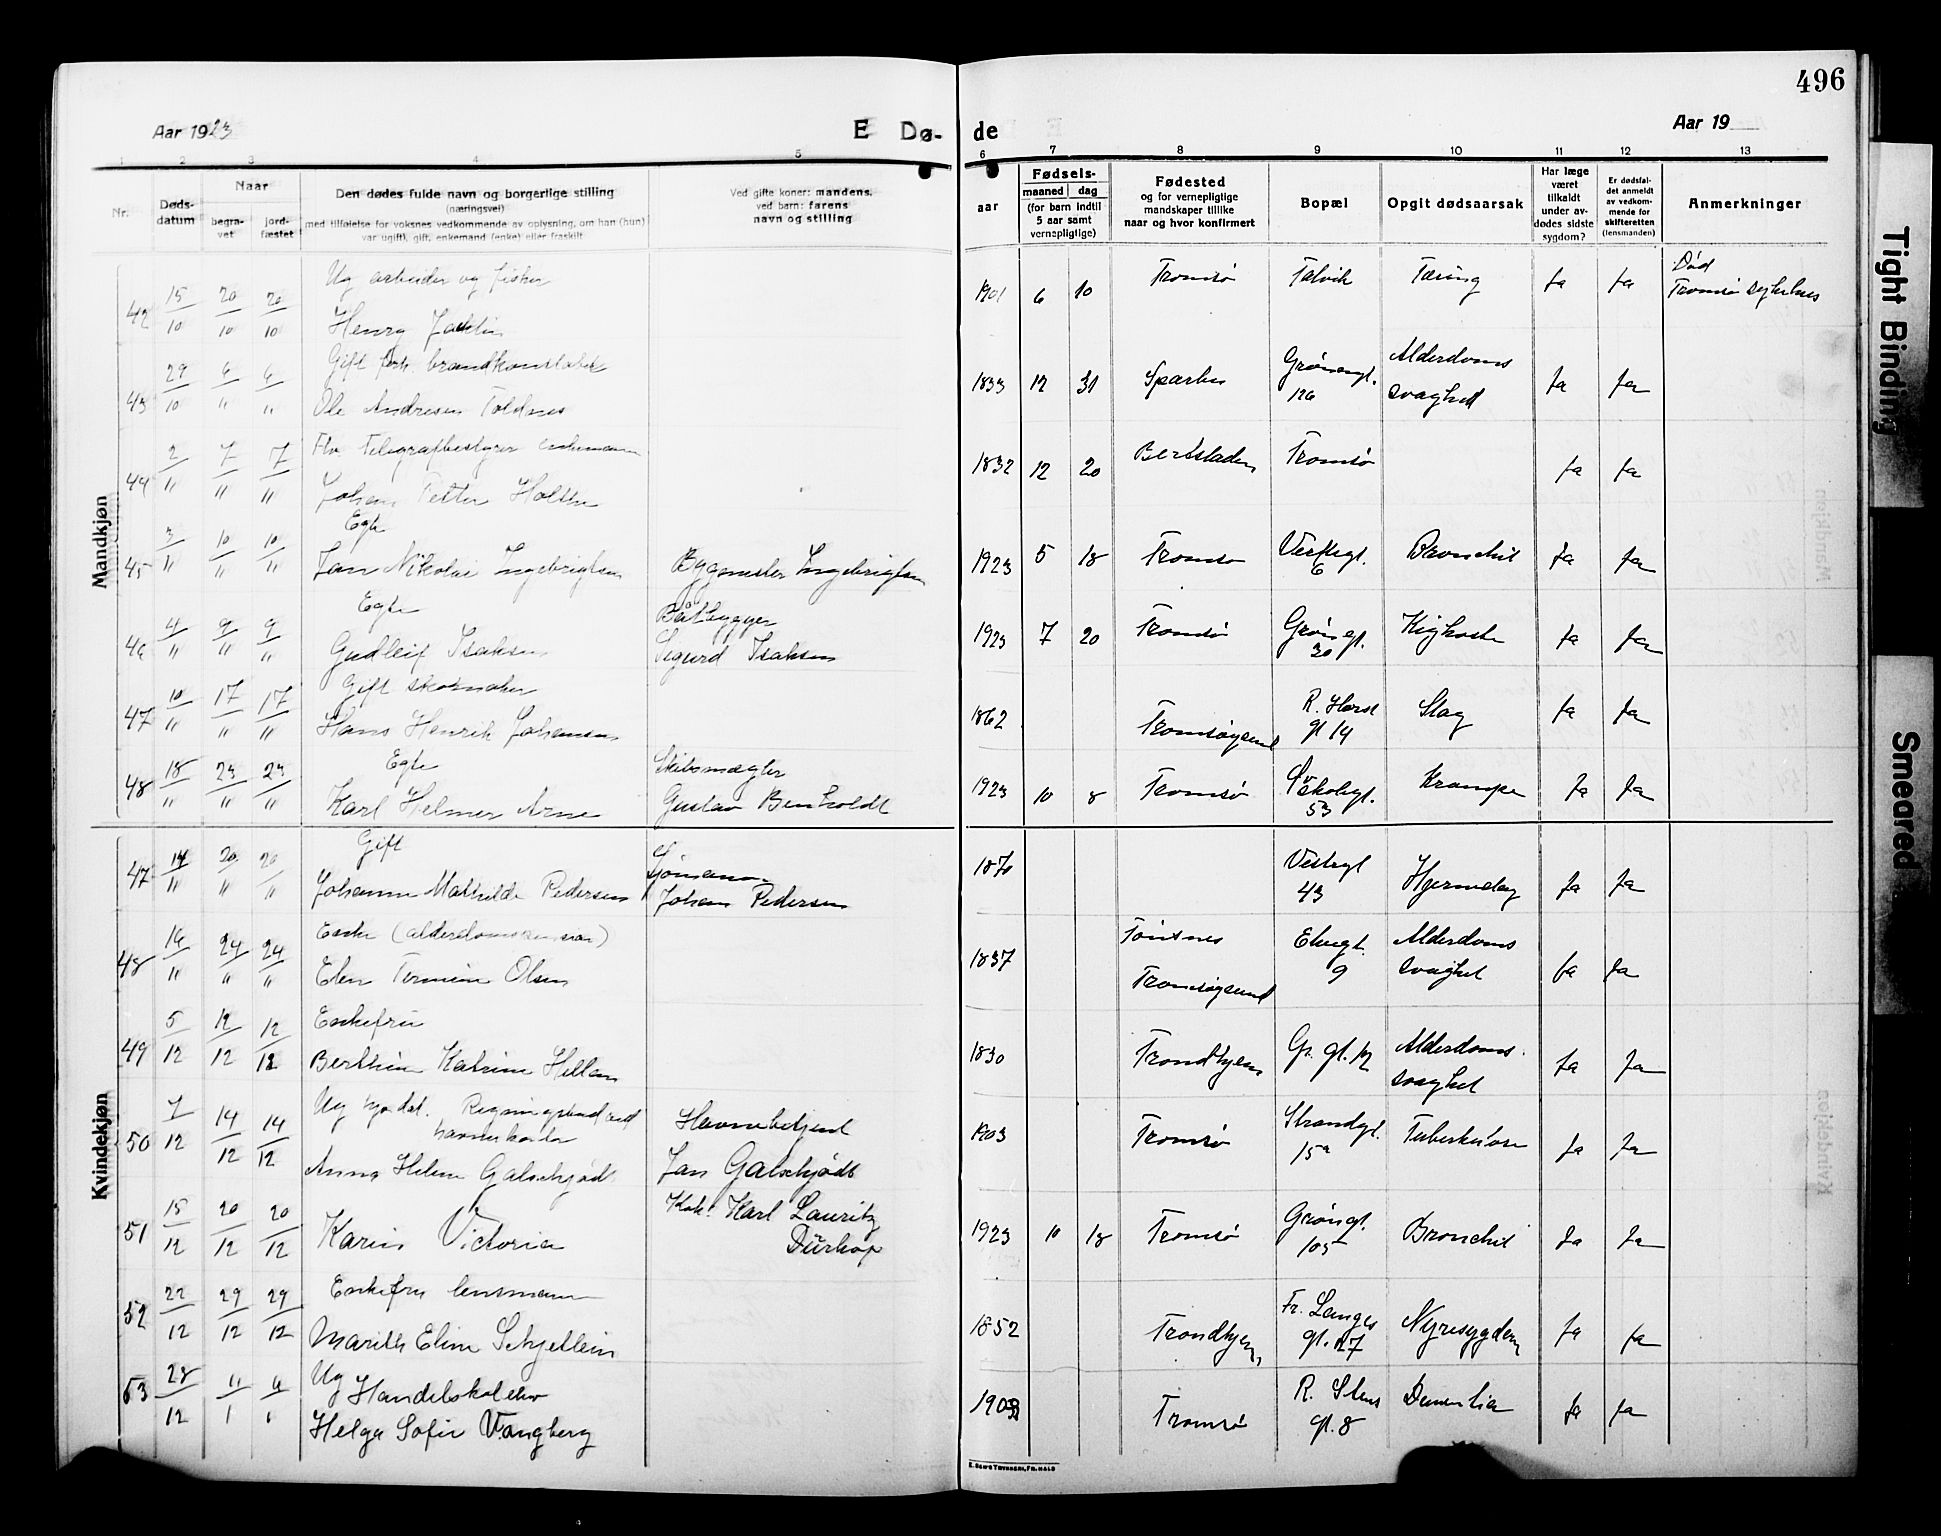 496
Aar 1923
E Dø-
de
Aar 19
1 2 3 4 5 6 7 8 9 10 11 12 13
Nr.
Døds-
datum
Naar
begra-
vet
jord-
fæstet
Den dødes fulde navn og borgerlige stilling
(næringsvei)
med tilføielse for voksnes vedkommende av oplysning, om han (hun)
var ugift, gift, enkemand (enke) eller fraskilt
Ved gifte koner: mandens,
ved barn: farens
navn og stilling
aar
Fødsels-
maaned dag
(for barn indtil
5 aar samt
vernepligtige)
Fødested
og for vernepligtige
mandskaper tillike
naar og hvor konfirmert
Bopæl
Opgit dødsaarsak
Har læge
været
tilkaldt
under av-
dødes sidste
sygdom?
Er dødsfal-
det anmeldt
av vedkom-
mende for
skifteretten
(lensmanden)
Anmerkninger
Mandkjøn
42 15/10 20/10 20/10 Ug arbeider og fisker
Henry
1901 6 10 Tromsø Talvik Tæring Ja Ja Død
Tromsø sykehus
43 29/10 6/11 6/11 Gift forh. brandkonstabel
Ole Andresen Toldnes
1833 12 31 Sparbu Grønnegt.
126 Alderdoms
svaghet Ja Ja
44 2/11 7/11 7/11 Fhv Telegrafbestyrer enkemann
Johan Petter Holthe
1832 12 20 Tromsø Ja Ja
45 3/11 10/11 10/11 Egte
Jan Nikolai Ingebrigtsen Byggmester Ingebrigtsen
1923 5 18 Tromsø Verftsgt.
6 Bronchit Ja Ja
46 4/11 9/11 9/11 Egte
Gudleif Isaksen Båtbygger
Sigurd Isaksen
1923 7 20 Tromsø Grønegt.
30 Kighoste Ja Ja
47 10/11 17/11 17/11 Gift skomaker
Hans Henrik Johansen
1862 Tromsøysund R. Horst
gt 14 Slag Ja Ja
48 18/11 23/11 23/11 Egte
Karl Helmer Arne Skibsmægler
Gustav Benholdt
1923 10 8 Tromsø Skolegt.
53 Krampe Ja Ja
Kvindekjøn
47 14/11 20/11 20/11 Gift
Johanne Mathilde Pedersen Sjømann
Johan Pedersen
1870 Vestregt
43 Hjerneslag Ja Ja
48 16/11 24/11 24/11 Enke
Elen Olsen
1837 Tønsnes
Tromsøysund Elvegt.
9 Alderdoms
svaghet Ja Ja
49 5/12 12/12 12/12 Enkefru
Berthine Katrine Hellan
1830 Trondhjem Gr. gt. 12 Alderdoms-
svaghet Ja Ja
50 7/12 14/12 14/12 Ug
havnekontor
Anna Helene Galschjødt Havnebetjent
Jan Galschjødt
1903 Tromsø Strandgt.
15a Tuberkulose Ja Ja
51 15/12 20/12 20/12 Karin Victoria Kok: Karl Lauritz
Dürkop
1923 10 18 Tromsø Grønegt.
105 Bronchit Ja Ja
52 22/12 29/12 29/12 Enkefru lensmann
Marith Eline Schjetlein
1852 Trondhjem Fr. Langes
gt. 27 Nyresygdom Ja Ja
53 28/12 Ug
Handelsskolelev
Helga Sofie Vangberg
Tromsø R. Stens
gt. 8 Dementia Ja Ja
E. Sem's Trykkeri, Fr.hald
Tight Binding
Smeared